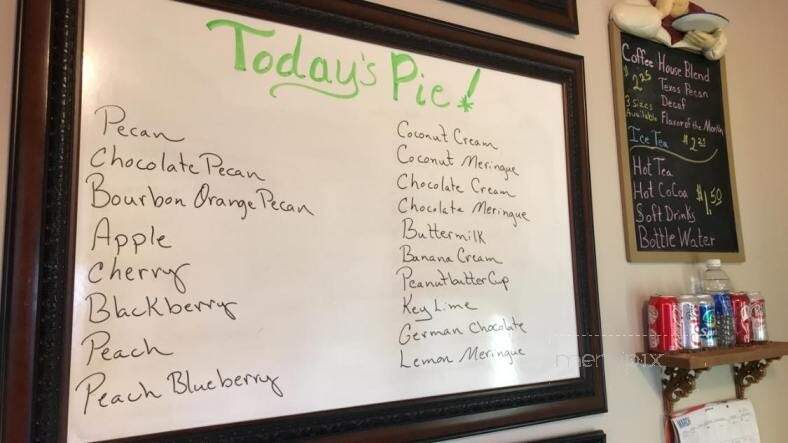 Today's Pie!
Pecan
Chocolate Pecan
Bourbon Orange Pecan
Apple
Cherry
Blackberry
Peach
Peach Blueberry
Coconut Cream
Coconut Meringue
Chocolate Cream
Chocolate Meringue
Buttermilk
Banana Cream
Peanutbutter Cup
Key Lime
German Chocolate
Lemon Meringue
Coffee House Blend
$2.25 Texas Pecan
3 sizes Decaf
Available Flavor of the Month
Ice Tea $2.25
Hot Tea
Hot Cocoa $1.50
Soft Drinks
Bottle Water
menupix
MARCH